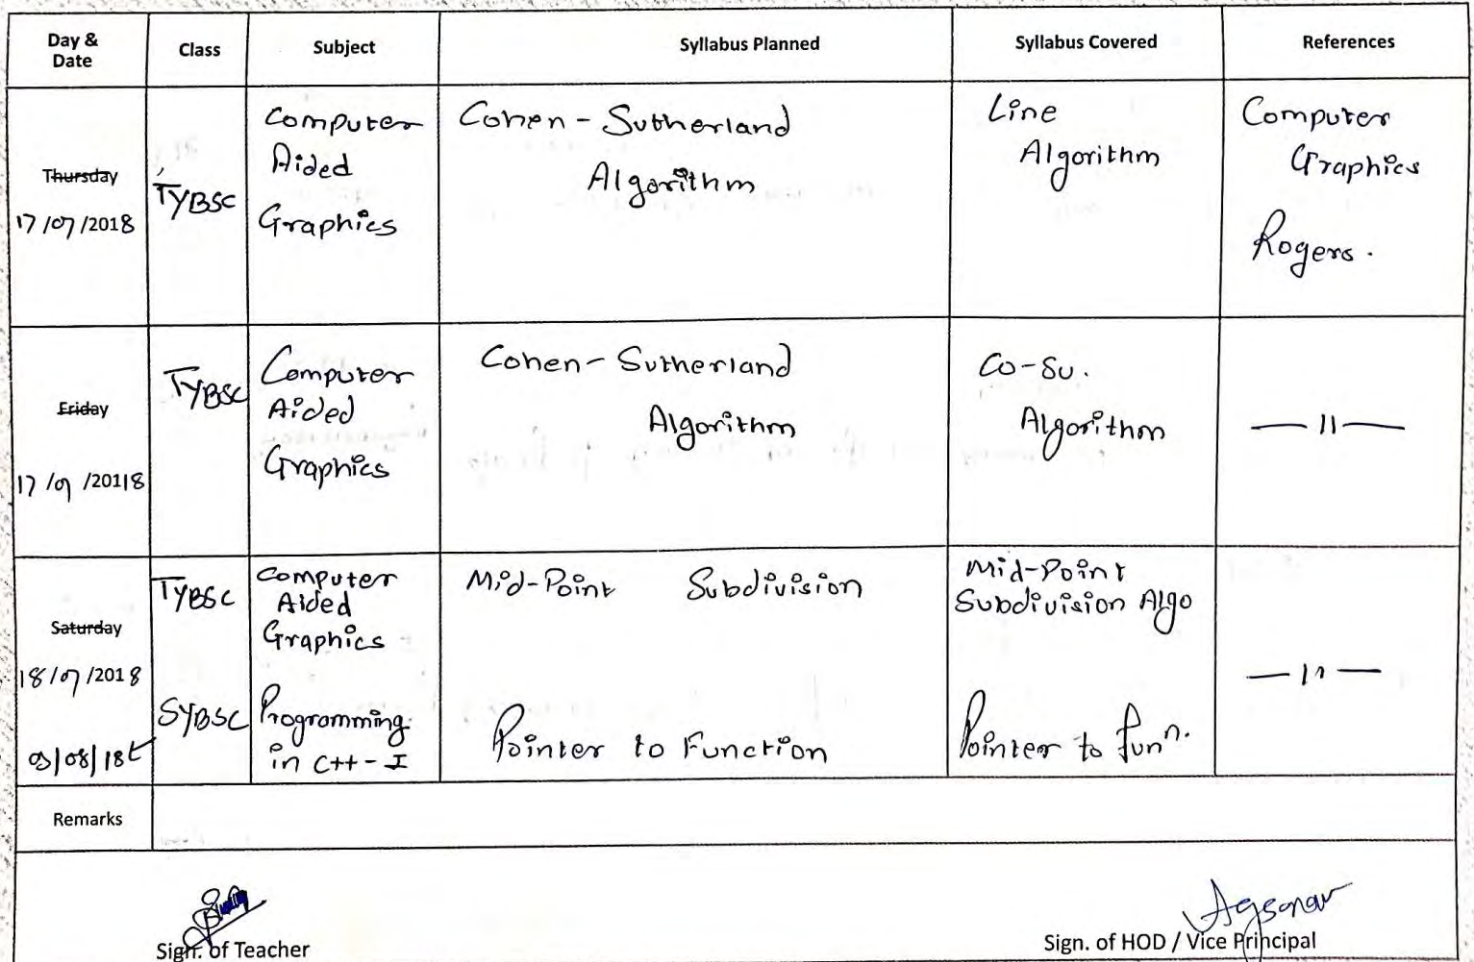 Day & Date Class Subject Syllabus Planned Syllabus Covered References
Thursday
17/07/2018
TYBSC
Computer
Aided
Graphics
Cohen-Sutherland
Algorithm
Line
Algorithm
Computer
Graphics
Rogers.
Friday
17/07/20118
TYBSC
Computer
Aided
Graphics
Cohen-Sutherland
Algorithm
Co-Su.
Algorithm
—11—
Saturday
18/07/2018
TYBSC
Computer
Aided
Graphics
Mid-Point Subdivision
Mid-Point
Subdivision Algo
—11—
/08/18
SYBSC
Programming
in C++-I
Pointer to Function
Pointer to funⁿ.
Remarks
Sign. of Teacher
Sign. of HOD / Vice Principal